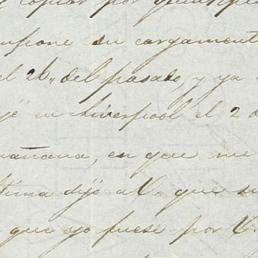 copiar por
su cargament
el 2 V. del pasado, y ya
en Liverpool el 2 d
mañana, en que me
tima dije a V. que su
que yo fuese por V.